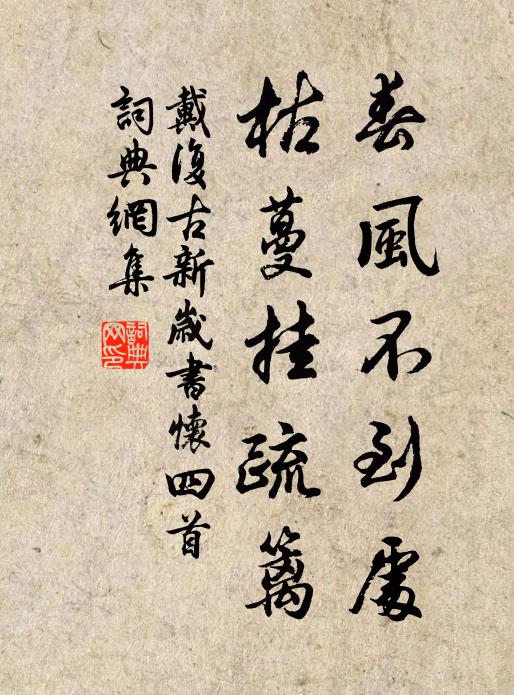 春風不到處
枯蔓挂疏籬
戴復古新歲書懷四首
詞典網集
詞典网印